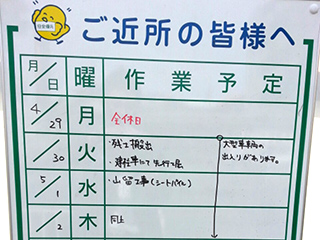 ご近所の皆様へ
月/日 曜 作業予定
4/29 月 全休日
/30 火 ・残土搬出
・建柱車にて先行掘
大型車輌の
出入りがあります。
5/1 水 ・山留工事(シートパイル)
/2 木 同上